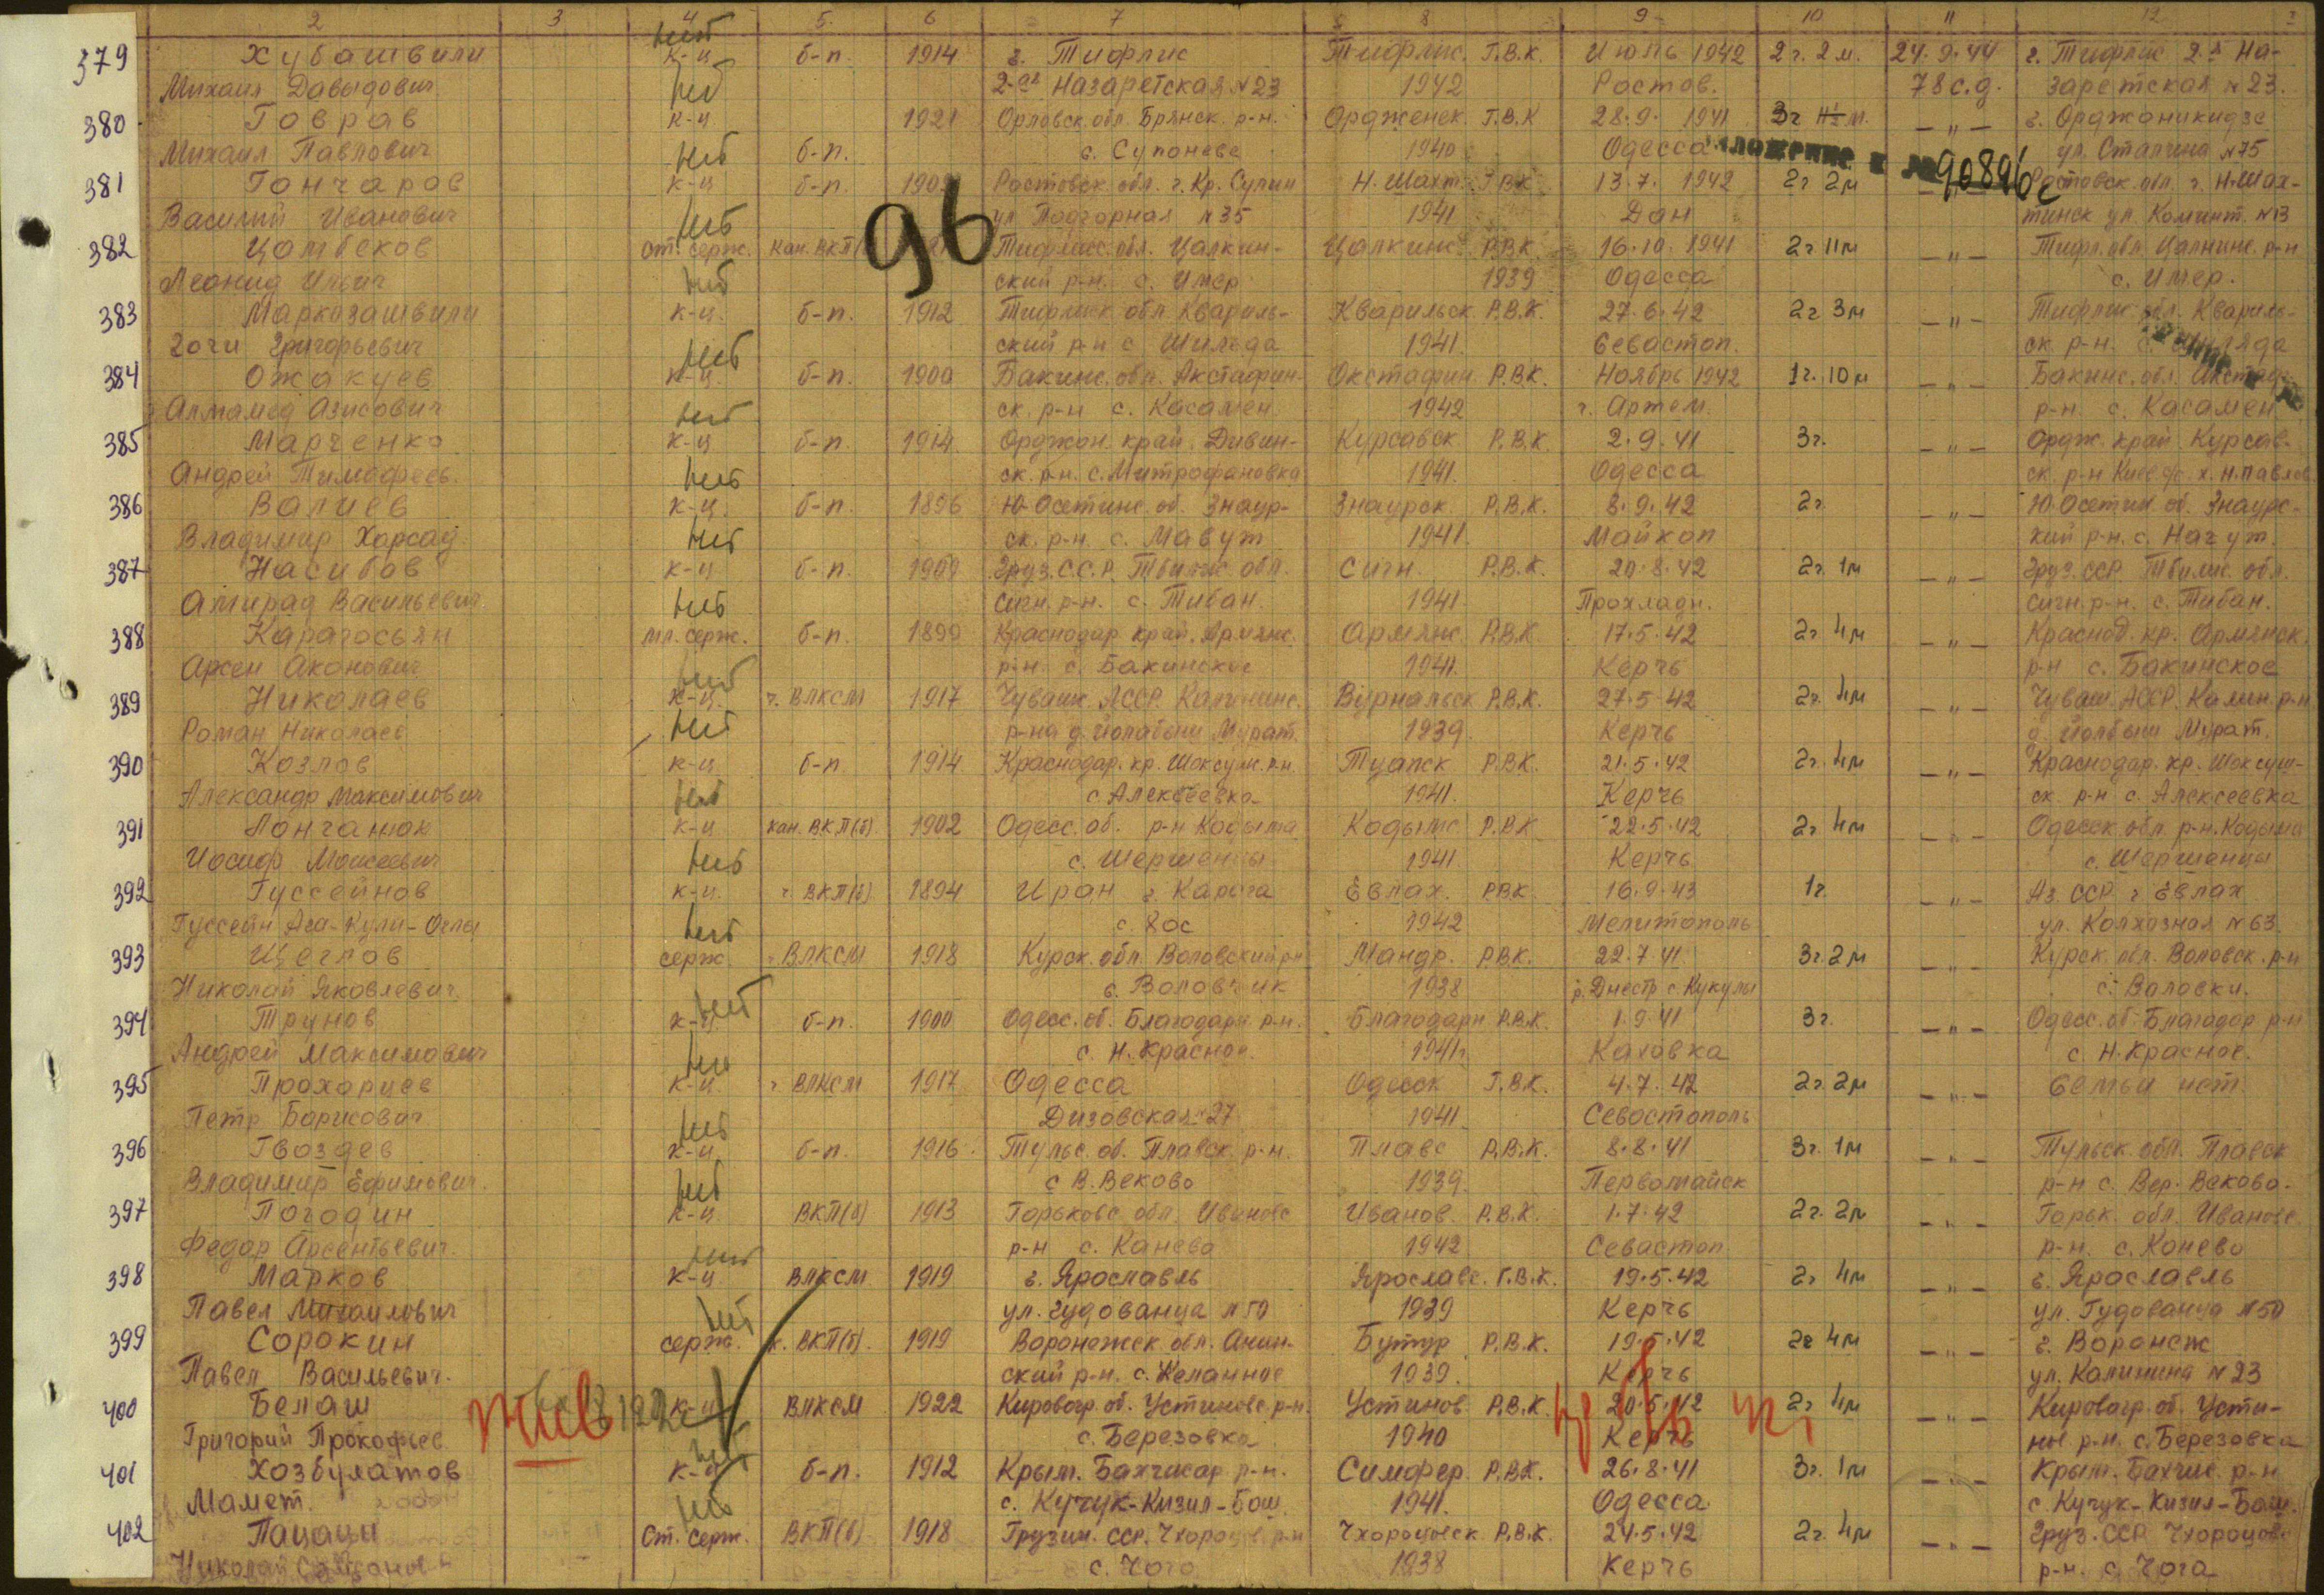 2 3 4 5. 6 7 8 9 10 11 12
нет
379 Хубашвили к-ц б-п. 1914 г. Тифлис Тифлис. Г.В.К. Июль 1942 2 г. 2 м. 24.9.44 г. Тифлис 2-я На-
Михаил Давыдович нет 2-ая Назаретская №23 1942 Ростов. 78 с.д. заретская №23.
380 Говрав к-ц 1921 Орловск. обл. Брянск. р-н. Ордженек Г.В.К 28.9. 1941 3г м. —"— г. Орджоникидзе
Михаил Павлович нет б-п. с. Супонева 1940 Одесса ул. Сталина №75
381 Гончаров к-ц б-п. Ростовск. обл. г. Кр. Сулин Н. Шахт. Г.В.К 13.7. 1942 2г 2м 90896с Ростовск. обл. г. Н-Шах-
Василий Иванович нет 96 ул. Подгорная №35 1941 Дон тинск ул. Коминт. №13
382 Цомбеков ст. серж. кан. ВКП( Тифлисс. обл. Цалкин- Цалкинс. Р.В.К. 16.10.1941 2г 11м —"— Тифл. обл. Цалкинс. р-н
Леонид Ильич нет ский р-н. с. Имер 1939 Одесса с. Имер.
383 Маркозашвили к-ц. б-п. 1912 Тифлиск. обл. Квариль- Кварильск Р.В.К. 27.6.42 2г 3м —"— Тифлис. обл. Квариль-
Гоги Григорьевич нет ский р-н с Шильда 1941. Севастоп. ск р-н. с. Шильда
384 Ожакуев к-ц. б-п. 1900 Бакинс. обл. Акстафин- Окстафин. Р.В.К. Ноябрь 1942 1г. 10м —"— Бакинс. обл.
Алмамед Азисович нет ск. р-н с. Касамен. 1942 г. Артем. р-н. с. Касамен
385 Марченко к-ц б-п. 1914. Орджон. край. Дивин- Курсавск Р.В.К. 2.9.41 3г. —"— Ордж. край Курсав-
Андрей Тимофеев. нет ск. р-н. с. Митрофановка 1941. Одесса ск р-н х. Н. Павлов
386 Валиев к-ц. б-п. 1896 Ю-Осетинс. об. Знаур- Знаурск Р.В.К. 8.9.42 2г. —"— Ю.Осетин. об. Знаурс-
Владимир Харсад нет ск. р-н. с. Мавут 1941. Майкоп кий р-н. с. Нагут.
387 Насибов к-ц б-п. 1909 Груз. С.С.Р. Тбилис обл. Сигн. Р.В.К. 20.8.42 2г. 1м —"— Груз. ССР Тбилис. обл.
Амирад Васильевич нет Сигн. р-н. с. Тибан. 1941 Прохладн. сигн. р-н. с. Тибан.
388 Карагосьян мл. серж. б-п. 1899 Краснодар. край. Армянс. Армянс. Р.В.К 17.5.42 2г. 4м —"— Краснод. кр. Армянск.
Арсен Аконович нет р-н. с. Бакинское 1941. Керчь р-н с. Бакинское
389 Николаев к-ц. г. ВЛКСМ 1917 Чуваш. АССР. Калининс. Вурнальск Р.В.К. 27.5.42 2г. 4м —"— Чуваш. АССР. Калин. р-н
Роман Николаев нет р-на д. Йолабыш Мурат. 1939. Керчь д. Йолбыш Мурат.
390 Козлов к-ц б-п. 1914 Краснодар. кр. Шоксуш. р.н. Туапск Р.В.К. 21.5.42 2г. 4м —"— Краснодар. кр. Шоксуш-
Александр Максимович нет с Алексеевка 1941. Керчь ск. р-н с. Алексеевка
391 Лончанюк к-ц кан. ВКП(б) 1902 Одесс. об. р-н Кодыма Кодымс Р.В.К 22.5.42 2г. 4м —"— Одесск. обл. р-н. Кодыма
Иосиф Моисеевич нет с. Шершенцы 1941. Керчь с. Шершенцы
392 Гуссейнов к-ц. г. ВКП(б) 1894 Иран г. Карыга Евлах. Р.В.К. 16.9.43 1г. —"— Аз. ССР г Евлах
Гуссейн Ага-Кули-Оглы нет с Хос 1942 Мелитополь ул. Колхозная №63.
393 Щеглов серж. ВЛКСМ 1918 Курск. обл. Воловский р-н Мандр. Р.В.К. 22.7.41 3г. 2м —"— Курск. обл. Воловск. р-н
Николай Яковлевич с. Воловчик 1938 р. Днестр с. Кукулы с. Воловки.
394 Трунов к-ц нет б-п. 1900 Одесс. об. Благодарн р-н. Благодарн Р.В.К. 1.9.41 3г. —"— Одесс. об. Благодар р-н
Андрей Максимович нет с. Н. Красное. 1941г. Каховка с. Н. Красное.
395 Прохорцев к-ц. г. ВЛКСМ 1917 Одесса Одесск Г.В.К. 4.7.42 2г. 2м —"— Семьи нет.
Петр Борисович нет Дизовская-27 1941 Севостополь
396 Гвоздев к-ц б-п. 1916 Тульс. об. Плавск. р-н. Плавс Р.В.К. 8.8.41 3г. 1м —"— Тульск. обл. Плавск
Владимир Ефимович. нет с В. Веково 1939. Первомайск р-н с. Вер. Веково.
397 Погодин к-ц. ВКП(б) 1913 Горьковс. обл. Ивановс Иванов. Р.В.К. 1.7.42 2г. 2м —"— Горьк. обл. Ивановс.
Федор Арсентьевич. нет р-н с. Канево 1942 Севастоп р-н. с. Конево
398 Марков к-ц ВЛКСМ 1919 г. Ярославль Ярославс. Г.В.К. 19.5.42 2г. 4м —"— г. Ярославль
Павел Михаилович нет ул. Гудованца №50 1939 Керчь ул. Гудованца №50
399 Сорокин серж. к. ВКП(б). 1919 Воронежск. обл. Анин- Бутур Р.В.К. 19.5.42 2г 4м —"— г. Воронеж
Павел Васильевич. ский р-н. с. Желанное 1939. Керчь ул. Калинина №23
400 Белаш жив к-ц ВЛКСМ 1922 Кировогр. об. Устиновс. р-н. Устинов. Р.В.К. 20.5.42 2г. 4м —"— Кировогр. об. Усти-
Григорий Прокофьев. с. Березовка 1940 Керчь нов. р-н. с. Березовка
401 Хозбулатов к-ц б-п. 1912 Крым. Бахчисар р-н. Симфер. Р.В.К. 26.8.41 3г. 1м —"— Крым. Бахчис. р-н
Мамет. нет с. Кучук-Кизил-Баш. 1941. Одесса с. Кучук-Кизил-Баш.
402 Пацация ст. серж. ВКП(б) 1918 Грузин. ССР. Чхороцов. р-н Чхороцовск. Р.В.К. 24.5.42 2г. 4м —"— Груз. ССР Чхороцов.
Николай с. Чога 1938 Керчь р-н. с Чога